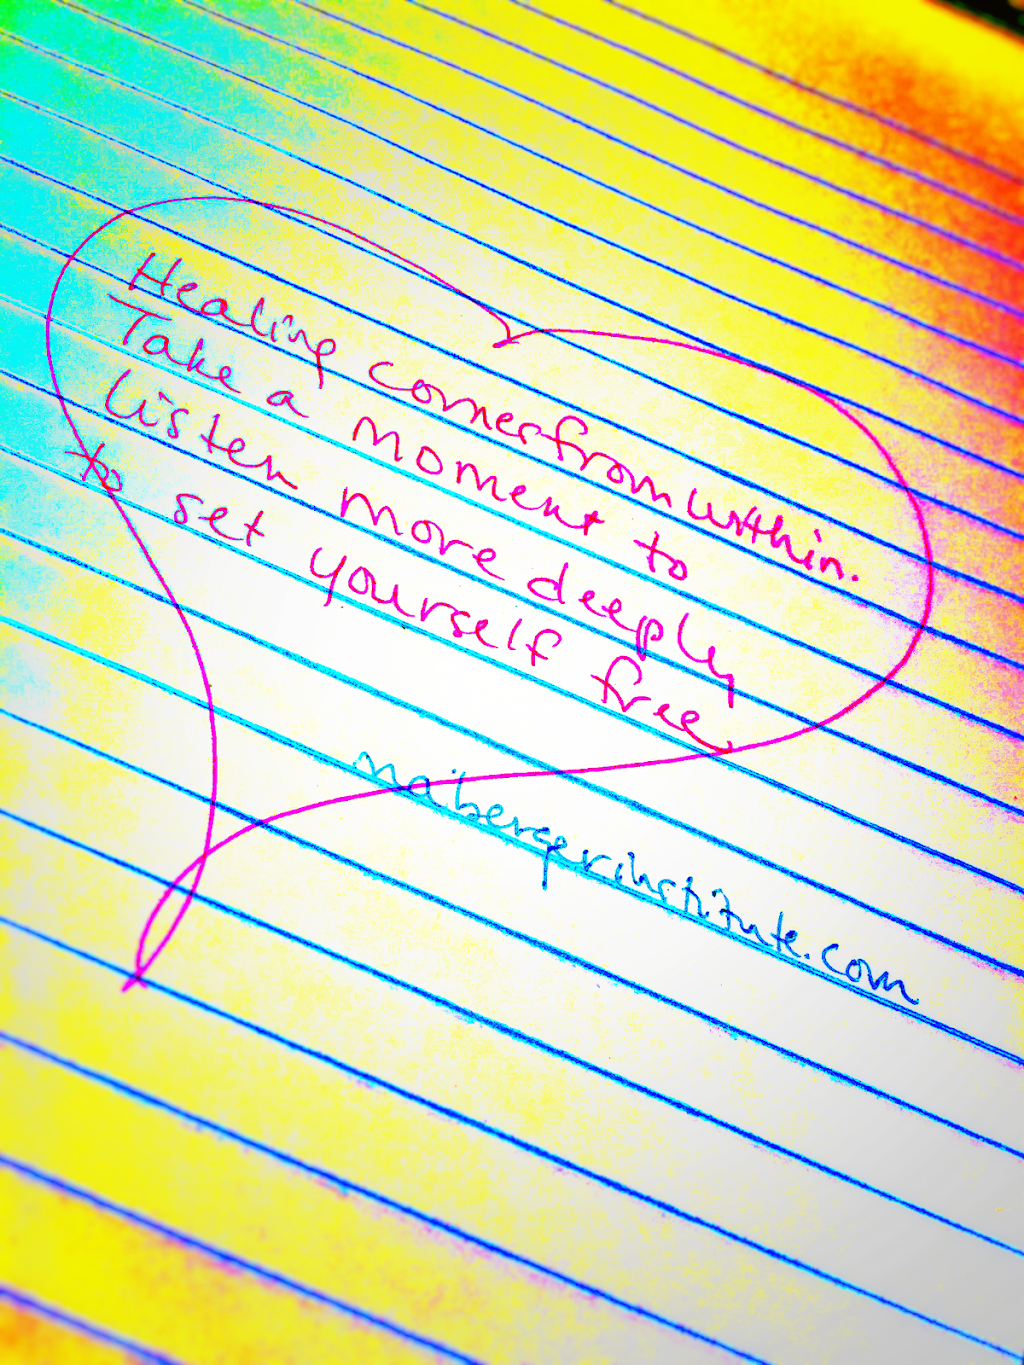 Healing comes from within.
Take a moment to
listen more deeply
to set yourself free
maibergerinstitute.com